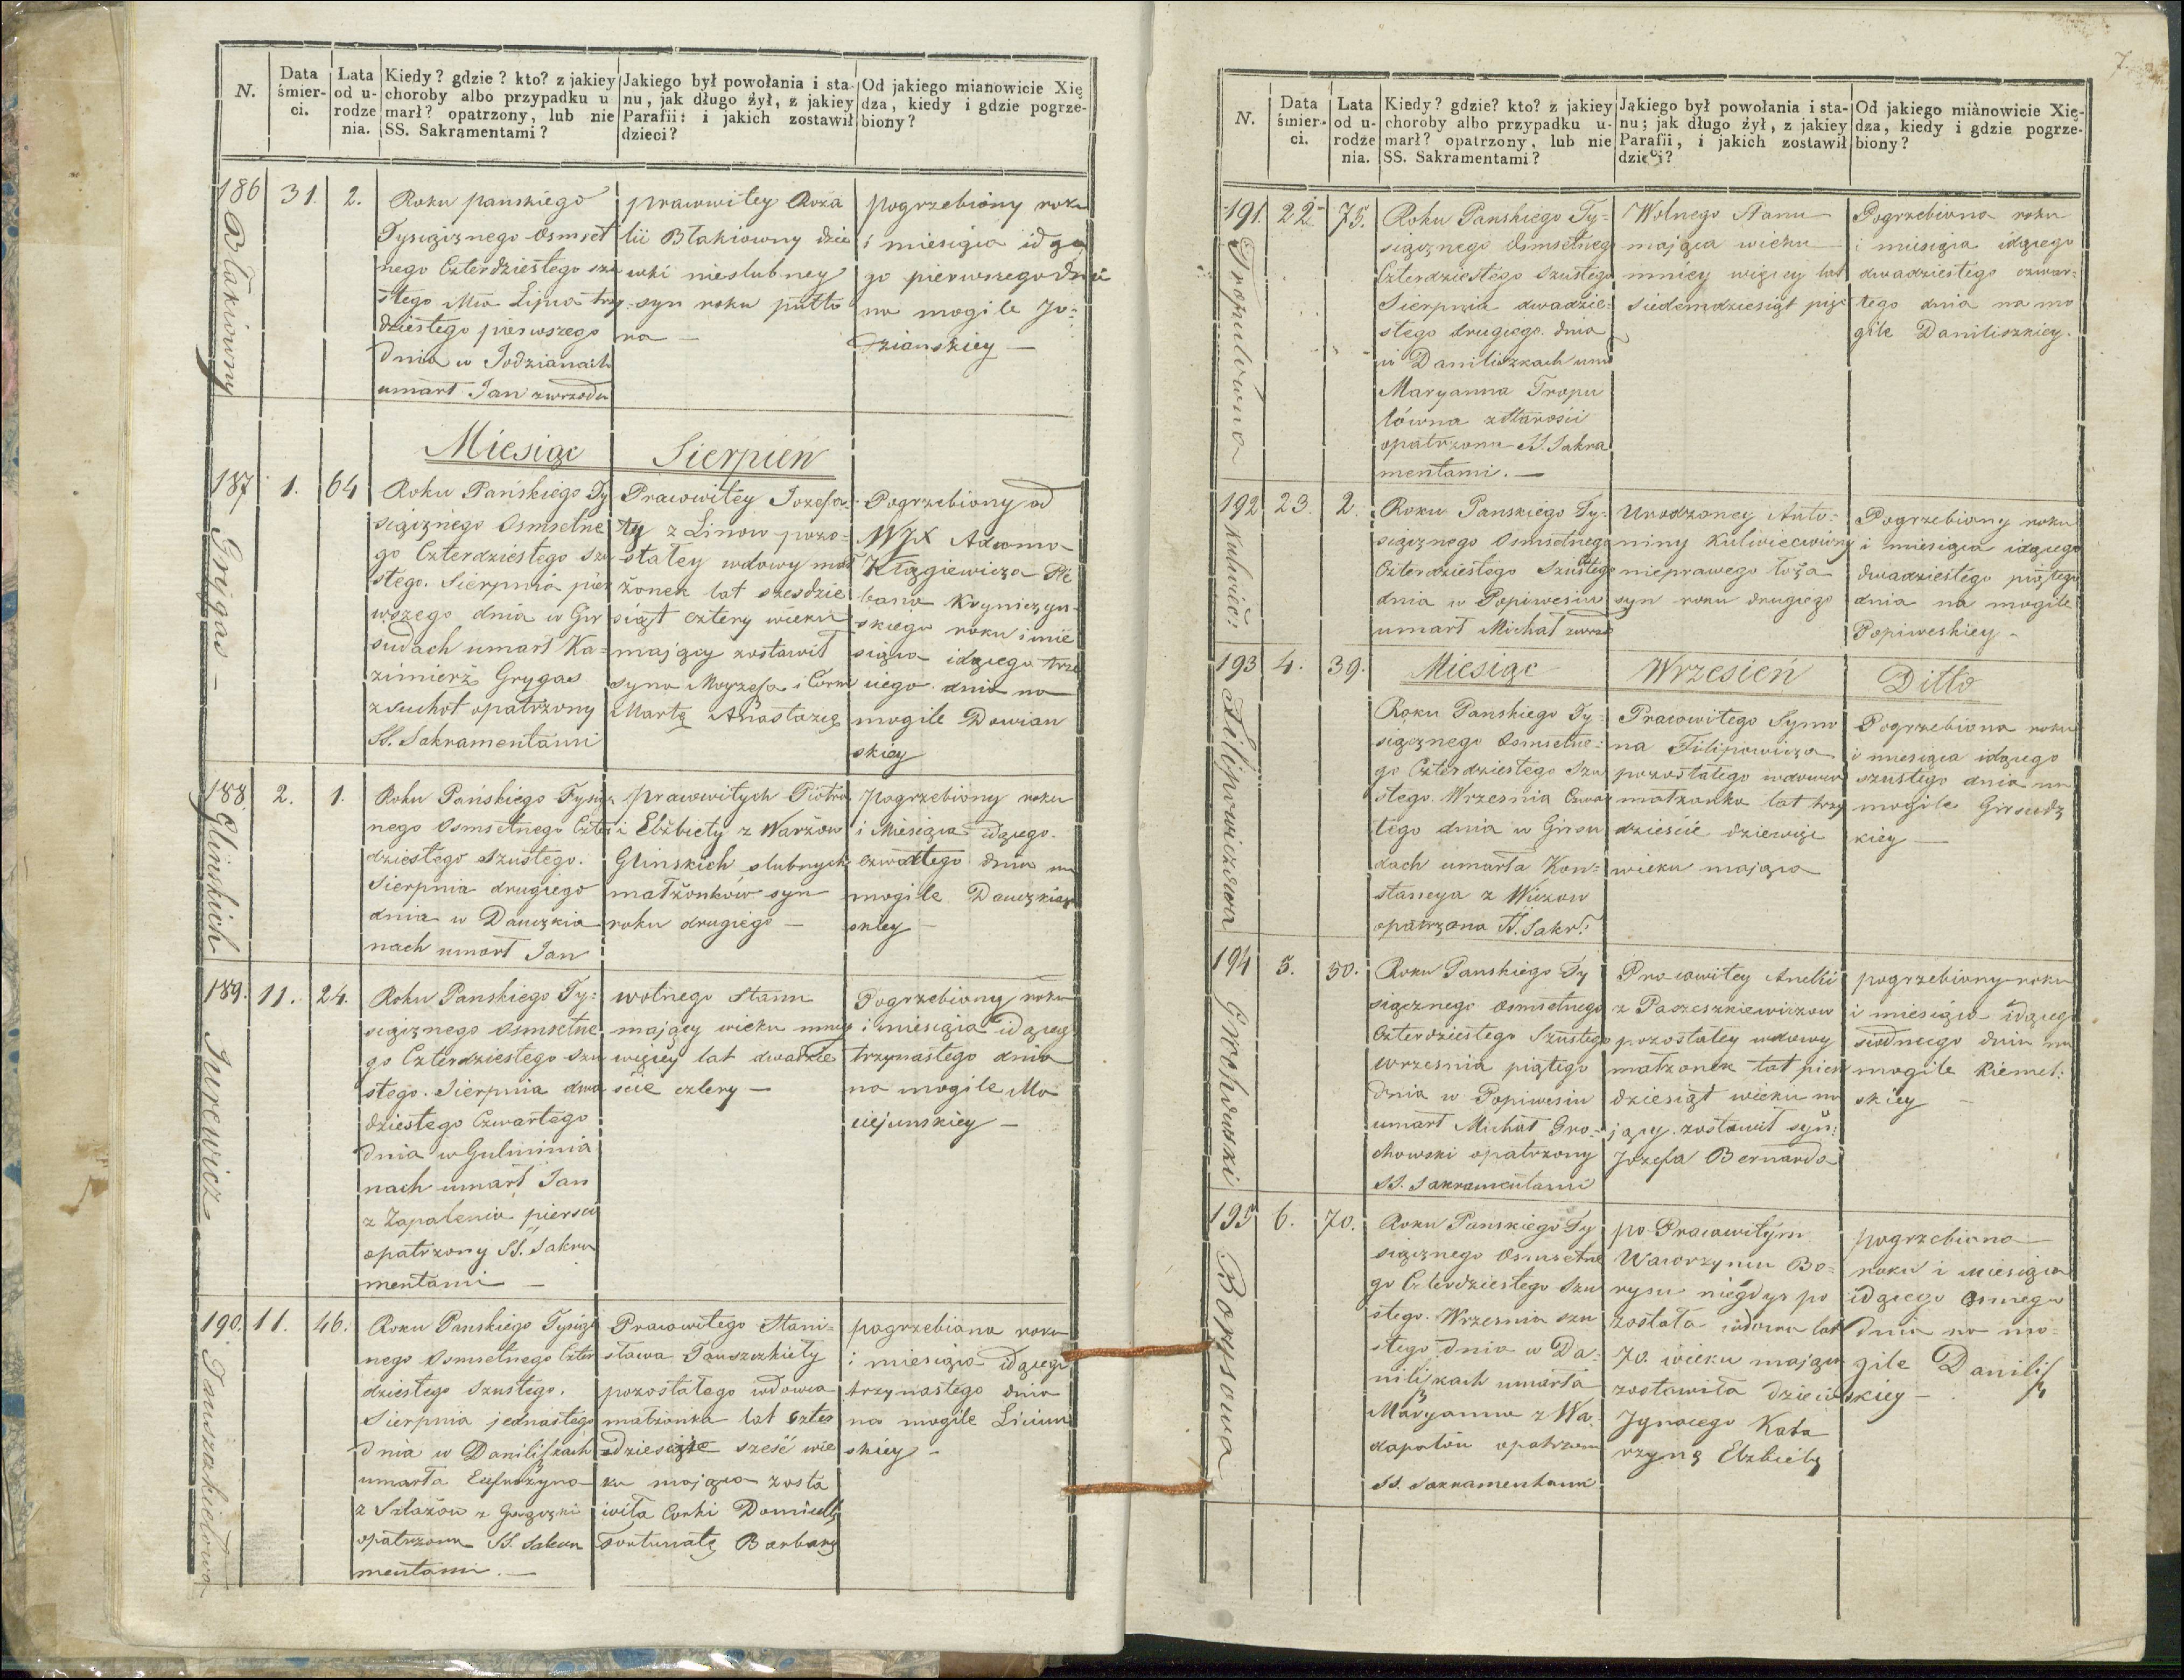 7.
N.
Data śmierci.
Lata od urodzenia.
Kiedy? gdzie? kto? z jakiey
choroby albo przypadku u
marł? opatrzony, lub nie
SS. Sakramentami?
Jakiego był powołania i sta-
nu, jak długo żył, z jakiey
Parafii: i jakich zostawił
dzieci?
Od jakiego mianowicie Xię
dza, kiedy i gdzie pogrze-
biony?
186
Błakiowny
31.
2.
Roku panskiego
Tysięcznego Osmset
nego Czterdziestego szu
stego Mca Lipca trzy
dziestego pierwszego
dnia w Jodzianach
umarł Jan z wrzodu
prawowitey Roza
lii Błakiowny dzie
wki nieslubney
syn roku pułto
ra —
pogrzebiony roku
i miesiąca idące
go pierwszego dnia
na mogile Jo-
dzianskiey —
Miesiąc Sierpień
187
Grygas
1.
64
Roku Pańskiego Ty
sięcznego Osmsetne
go Czterdziestego Szu
stego. Sierpnia pier
wszego dnia w Gir
sudach umarł Ka=
zimierz Grygas
z suchot opatrzony
SS. Sakramentami
Pracowitey Jozefa-
ty z Linow pozo=
stałey wdowy mał
żonek lat szesdzie
siąt cztery wieku
mający zostawił
syna Jozefa i Corki
Martę Anastazię
Pogrzebiony od
WJX Adama
Klągiewicza Ple
bana Kryniczyn-
skiego roku i mie
siąca idącego trze
ciego dnia na
mogile Dowian
skiey
188.
Glinskich
2.
1.
Roku Pańskiego Tysię
nego Osmsetnego Czter
dziestego Szustego.
Sierpnia drugiego
dnia w Dauczkia
nach umarł Jan
prawowitych Piotra
i Elżbiety z Warżow
Glinskich slubnych
małżonków syn
roku drugiego —
pogrzebiony roku
i Miesiąca idącego.
czwartego dnia na
mogile Dauczkian
skiey
189.
Jurewicz
11.
24.
Roku Panskiego Ty=
sięcznego Osmsetne
go Czterdziestego Szu
stego. Sierpnia dwa
dziestego Czwartego
dnia w Gulminia
nach umarł Jan
z Zapalenia piersi
opatrzony SS. Sakra
mentami —
wolnego Stanu
mający wieku mniey
więcey lat dwadzie
scie cztery —
Pogrzebiony roku
i miesiąca idąceg
trzynastego dnia
na mogile Ma
ciejunskiey —
190.
Tauszakietowa
11.
46.
Roku Panskiego Tysięcz
nego Osmsetnego Czter
dziestego Szustego.
Sierpnia jednastego
dnia w Daniliszkach
umarła Eufrozyna
opatrzona SS. Sakra
mentami. —
Pracowitego Stani=
sława Tauszczkiety
pozostałego wdowca
małżonka lat czter
dziescie sześć wie
ku mająca zosta
wiła Corki Domicellę
Fortunatę Barbarę
pogrzebiona roku
i miesiąca idącego
trzynastego dnia
na mogile Liciun
skiey —
N.
Data śmierci.
Lata od urodzenia.
Kiedy? gdzie? kto? z jakiey
choroby albo przypadku u-
marł? opatrzony, lub nie
SS. Sakramentami?
Jakiego był powołania i sta-
nu; jak długo żył, z jakiey
Parafii, i jakich zostawił
dzieci?
Od jakiego miànowicie Xię-
dza, kiedy i gdzie pogrze-
biony?
191.
Tropulowna
22
75.
Roku Panskiego Ty=
sięcznego Osmsetneg
Czterdziestego Szustego
Sierpnia dwadzie=
stego drugiego dnia
w Daniliszkach um
Maryanna Tropu
lówna z Starości
opatrzona SS. Sakra
mentami. —
Wolnego Stanu
mająca wieku
mniey więcey lat
siedemdziesiąt pięć
Pogrzebiona roku
i miesiąca idącego
dwadziestego czwar=
tego dnia na mo
gile Daniliszkiey.
192
Kulwieć:
23.
2.
Roku Panskiego Ty=
sięcznego Osmsetnego
Czterdziestego Szustego
dnia w Popiwesiu
umarł Michał z wrzo
Urodzoney Anto=
niny Kulwiecwiny
nieprawego Łoża
syn roku drugiego
Pogrzebiony roku
i miesiąca idącego
dwadziestego piątego
dnia na mogile
Popiweskiey —
Miesiąc Wrzesień Ditto
193
Filipowiczowa
4.
39.
Roku Panskiego Ty=
sięcznego Osmsetne=
go Czterdziestego Szu
stego. Wrzesnia Czwar
tego dnia w Girsu
dach umarła Kon=
stancya z Wizow
opatrzona SS. Sakr:
Pracowitego Symo
na Filipowicza
pozostałego wdowca
małżonka lat trzy
dzieście dziewięć
wieku mająca
Pogrzebiona roku
i miesiąca idącego
szustego dnia na
mogile Girsudz
kiey —
194
Grochowski
5.
50.
Roku Panskiego Ty
sięcznego Osmsetnego
Czterdziestego Szustego
wrzesnia piątego
dnia w Popiwesiu
umarł Michał Gro=
chowski opatrzony
SS. Sakramentami
Pracowitey Anelii
z Paszeszkiewiczow
pozostałey wdowy
małzonek lat pięć
dziesiąt wieku ma
jący zostawił syn:
Jozefa Bernarda
pogrzebiony roku
i miesiąca idącego
siodmego dnia na
mogile Kiemel:
skiey —
195
Borysowa
6.
70.
Roku Panskiego Ty
sięcznego Osmsetne
go Czterdziestego Szu
stego. Wrzesnia szu
stego dnia w Da=
niliszkach umarła
Maryanna z Wa=
dapalow opatrzona
SS. Sakramentami
po Pracowitym
Wawrzyncu Bo=
rysu niegdys po
została wdowa lat
70. wieku mająca
zostawiła dzieci
Jgnacego Kata
rzynę Elzbietę
pogrzebiona
roku i miesiąca
idącego osmego
dnia na mo=
gile Danilisz
skiey —